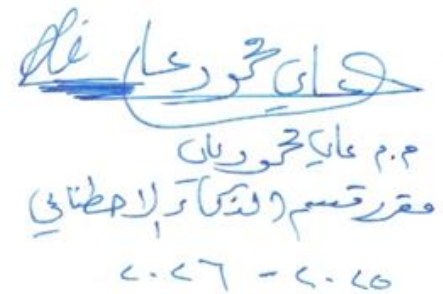 علي محمود علي
م.م علي محمود
مقرر قسم الذكاء الاصطناعي
٢٠٢٥ - ٢٠٢٦